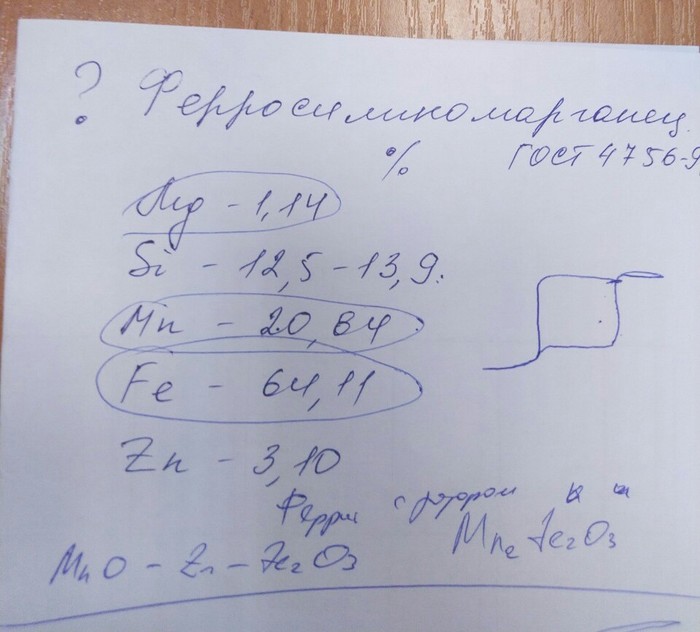 ? Ферросиликомарганец
% ГОСТ 4756-9
Mg - 1,14
Si - 12,5-13,9.
Mn - 20,64
Fe - 64,11
Zn - 3,10
Ферри с
Mn2 Fe2O3
MnO - Zn - Fe2O3